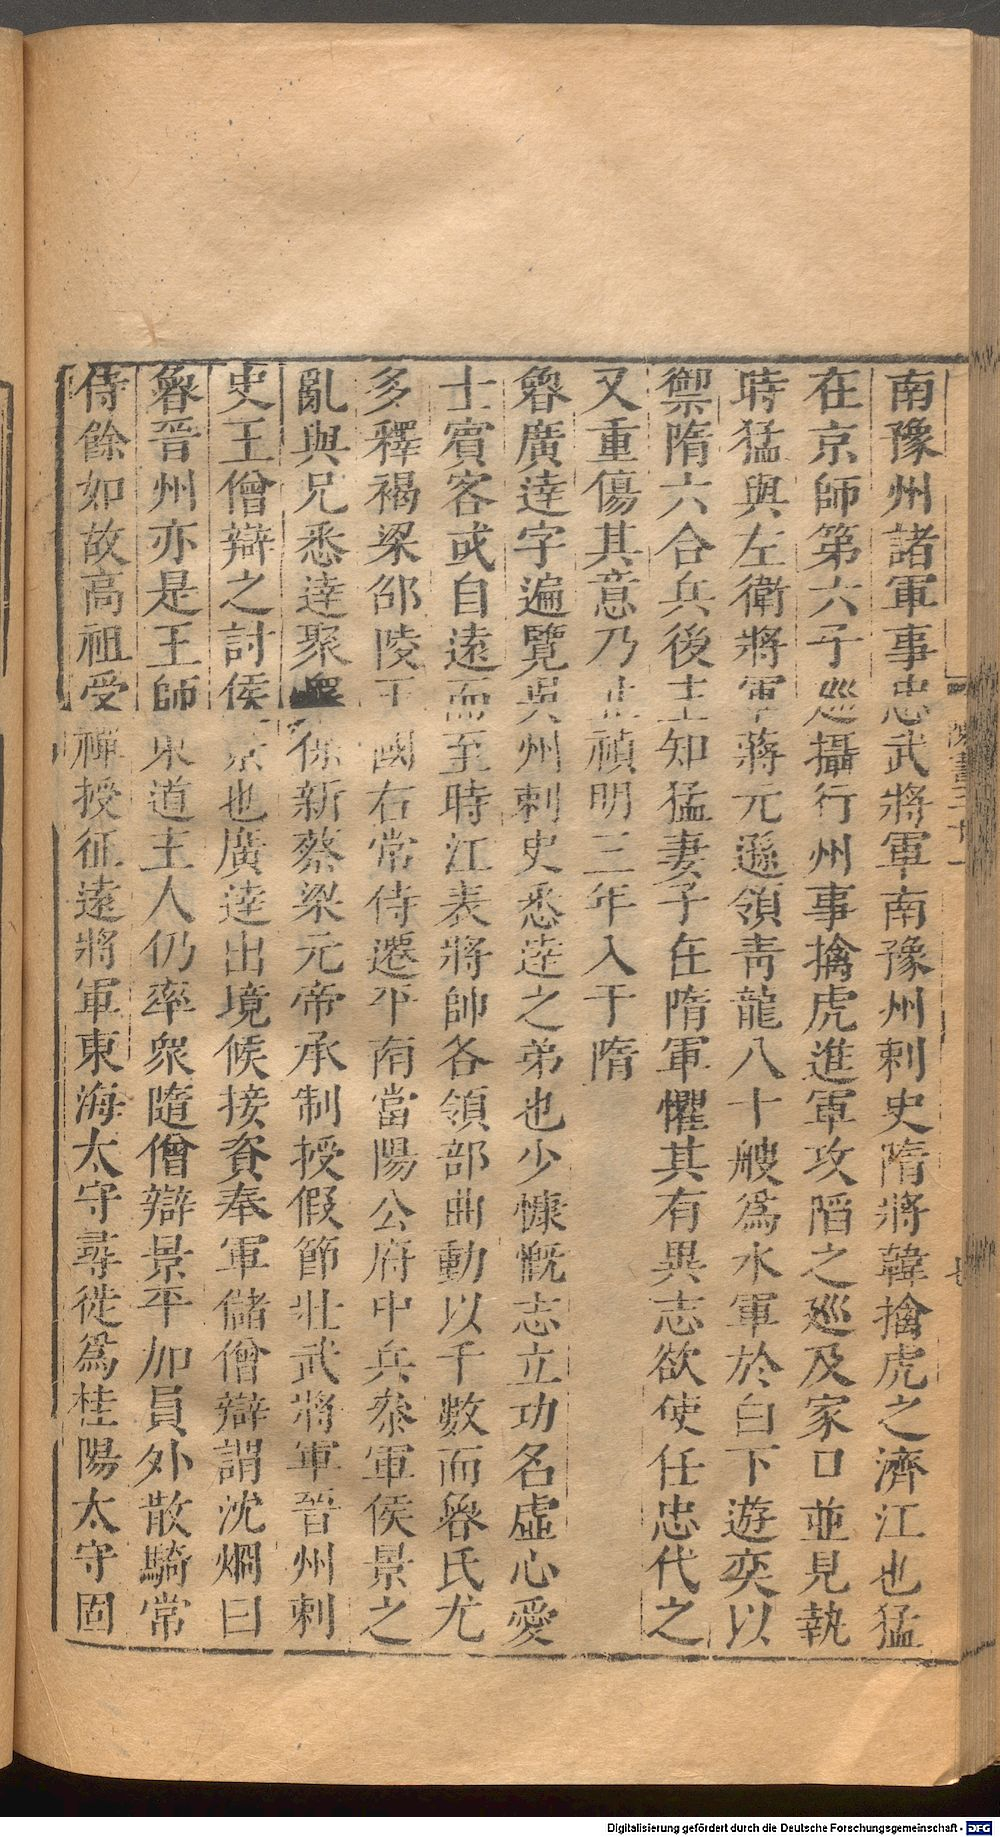 南豫州諸軍事忠武將軍南豫州刺史隋將韓擒虎之濟江也猛
在京師第六子廵攝行州事擒虎進軍攻陷之廵及家口並見執
時猛與左衛將軍蔣元遜領靑龍八十艘爲水軍於白下遊奕以
禦隋六合兵後主知猛妻子在隋軍懼其有異志欲使任忠代之
又重傷其意乃止禎明三年入于隋
魯廣逹字遍覽吳州刺史悉逹之弟也少慷慨志立功名虛心愛
士賓客或自遠而至時江表將帥各領部曲動以千數而魯氏尤
多釋褐梁邵陵王國右常侍遷平南當陽公府中兵叅軍侯景之
亂與兄悉逹聚衆保新蔡梁元帝承制授假節壯武將軍晉州刺
史王僧辯之討侯景也廣逹出境候接資奉軍儲僧辯謂沈烱曰
魯晉州亦是王師東道主人仍率衆隨僧辯景平加員外散騎常
侍餘如故高祖受禪授征遠將軍東海太守尋徙爲桂陽太守固
Digitalisierung gefördert durch die Deutsche Forschungsgemeinschaft - DFG